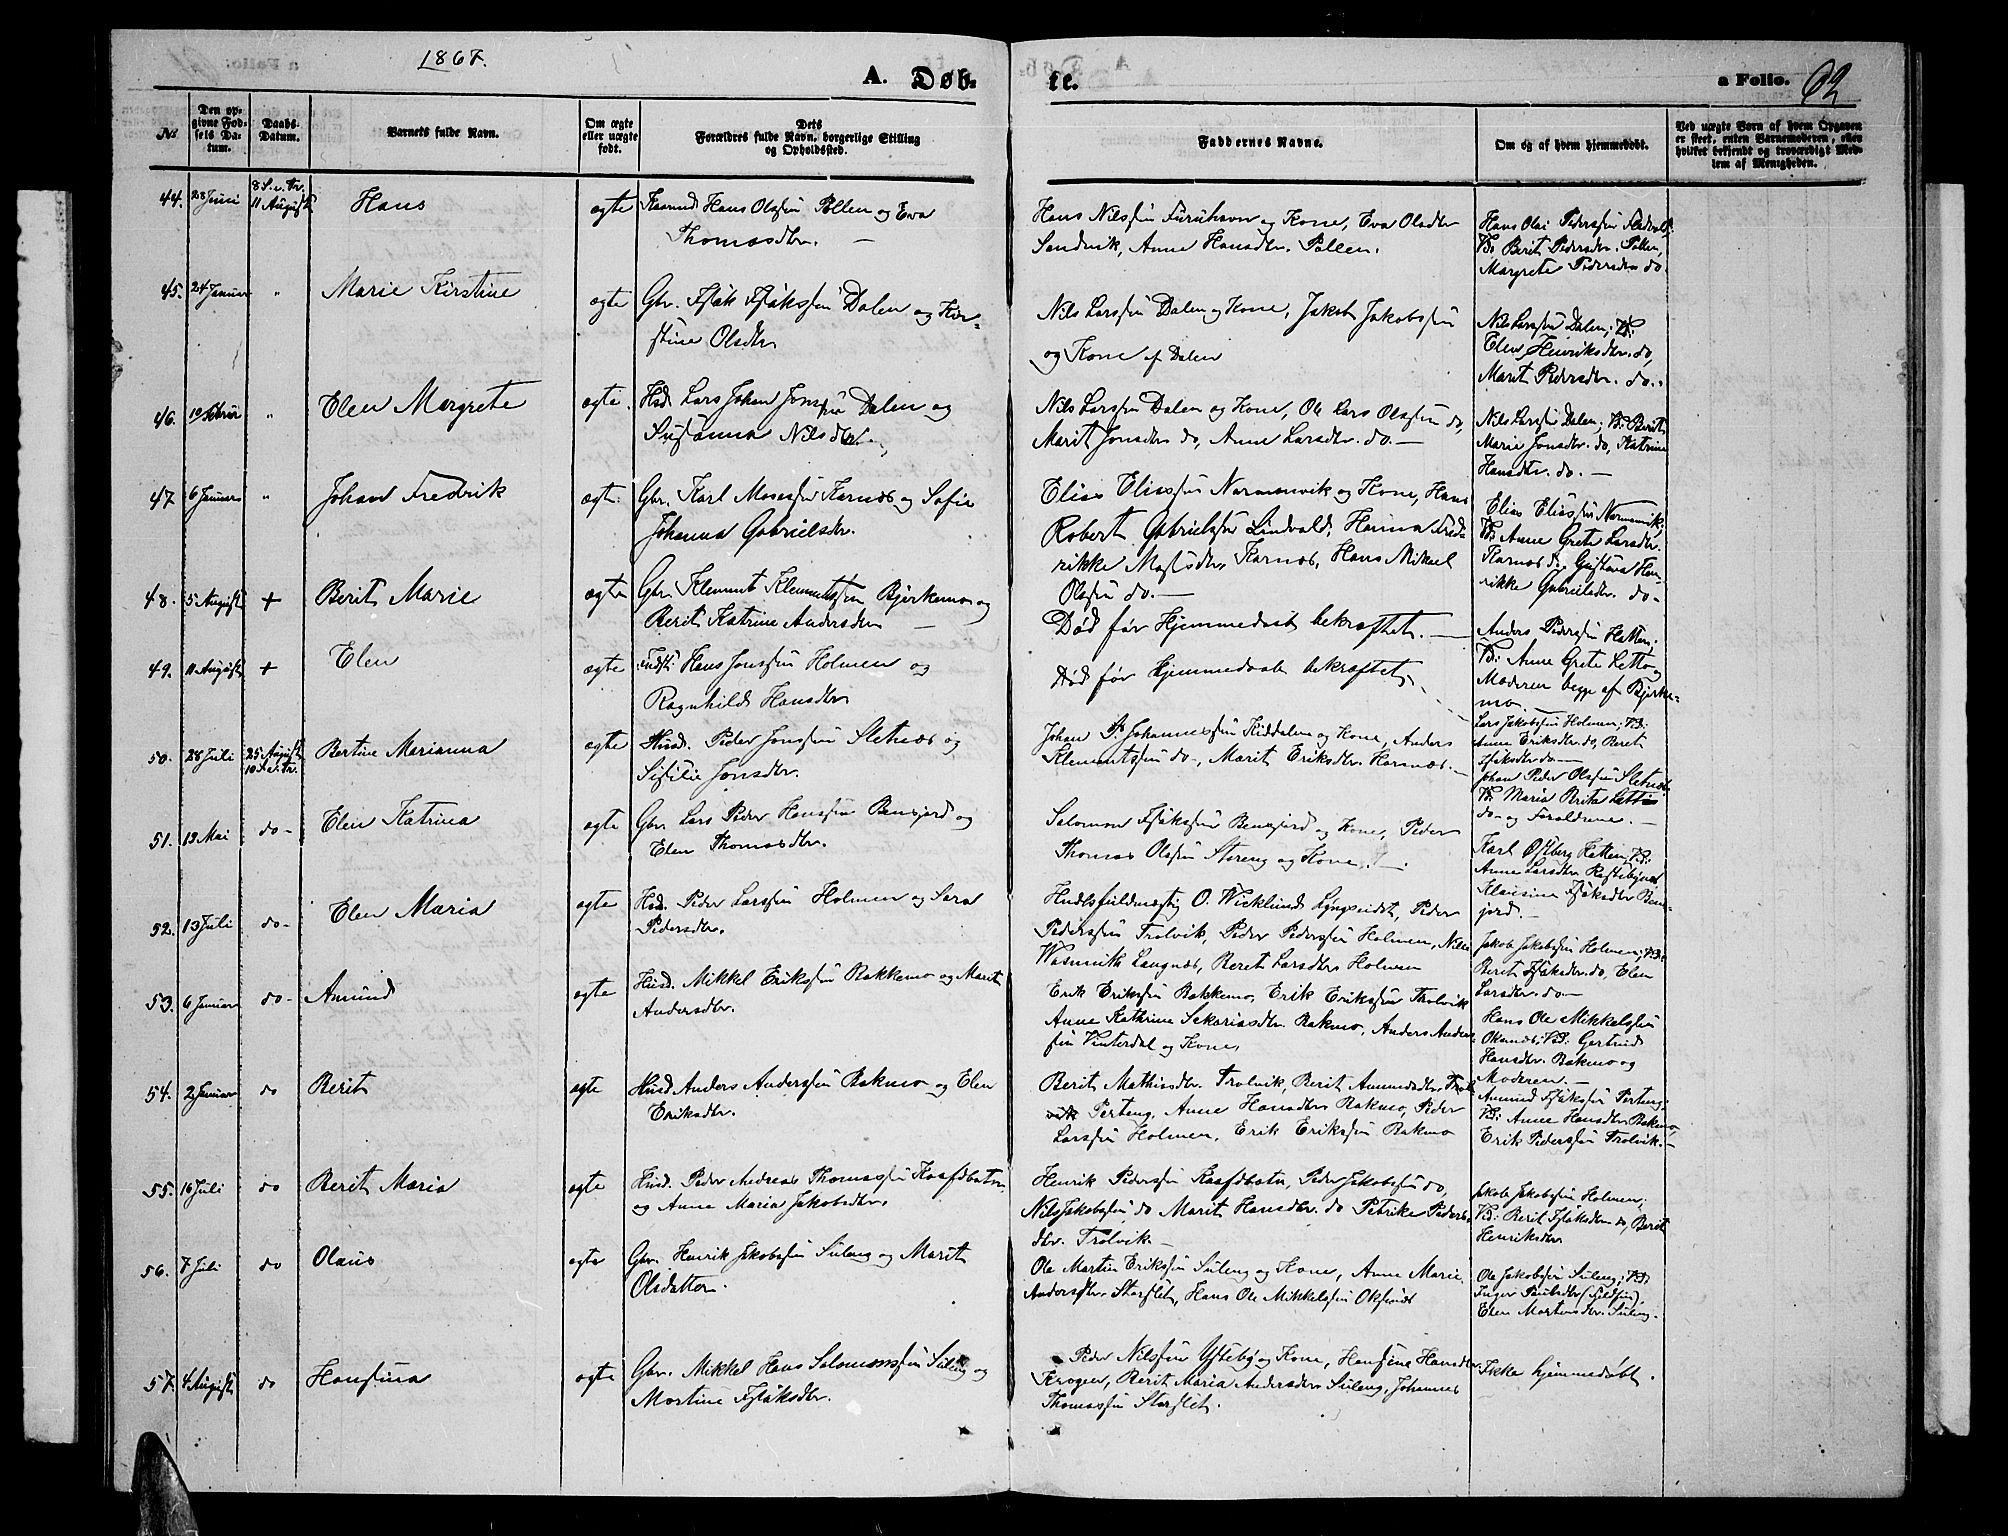 1867.
A. Døb-
te.
a Folio. 62
No.
Den op-
givne Fød-
sels Da-
tum.
Daabs-
Datum.
Barnets fulde Navn.
Om ægte
eller uægte
født.
Dets
Forældres fulde Navn, borgerlige Stilling
og Opholdssted.
Faddernes Navne.
Om og af hvem hjemmedøbt.
Ved uægte Børn af hvem Opgaven
er skeet, enten Barnemoderen, eller
hvilket bekjendt og troværdigt Med-
lem af Menigheden.
44. 28 Juni 8 S. e. Tr.
11 August
Hans
ægte
Hans Olsen Pollen og Eva
Thomasdtr. —
Hans Nilssen Furuhavn og Kone, Eva Olsdtr
Sandvik, Anne Hansdtr. Pollen.
Hans Olai Pederssen
V: Berit Pedersdtr. Pollen,
Margrete Pedersdtr do.
45. 24 Januar "
Marie Kirstine
ægte
Gbr. Isak Isakssen Dalen og Kir-
stine Olsdtr
Nils Larssen Dalen og Kone, Jakob Jakobssen
og Kone af Dalen
Nils Larssen Dalen; V:
Elen Henriksdtr. do,
Marit Pedersdtr. do.
46. 10 Febrúr "
Elen Margrete
ægte
Hsd. Lars Johan Jonssen Dalen og
Susanna Nilsdtr.
Nils Larssen Dalen og Kone, Ole Lars Olsen do,
Marit Jonsdtr do, Anne Larsdtr. do. —
Nils Larssen Dalen; V: Berit
Marie Jonsdtr. do, Katrine
Hansdtr. do. —
47. 6 Januar "
Johan Fredrik
ægte
Gbr. Karl Mosessen Karnæs og Sofie
Johanna Gabrielsdtr.
Elias Eliassen Normannvik og Kone, Hans
Robert Gabrielssen Lindvald, Hanna Fred-
rikke Karnæs, Hans Mikael
Olssen do. —
Elias Eliassen Normanvik;
V: Anne Grete Larsdtr.
Karnæs og Gustava Hen-
rikke Gabrielsdtr. do-
48. 5 August +
Berit Marie
ægte
Gbr. Klemmet Klemmetssen Bjørkemo og
Berit Katrine Andersdtr —
Død før Hjemmedaab bekræftet. —
Anders Pederssen Hatten;
V: Anne Grete
Moderen begge af Bjørke-
mo. —
49. 11 August +
Elen
ægte
Inds: Hans Jonssen Holmen og
Ragnhild Hansdtr
Død før Hjemmedaab bekræftet.
Lars Jakobssen Holmen; V:
Anne Eriksdtr. do, Beret
Isaksdtr do —
50. 28 Juli 25 August
10 S. e. Tr.
Bertine Marianna
ægte
Husd. Peder Jonssen Sletnæs og
Sisilie Jonsdtr.
Johan P. Johannessen Kiddalen og Kone, Anders
Klemmetssen do-, Marit Eriksdtr. Hornæs. —
Johan Peder Olssen Sletnæs
V: Maria Brita
do- og Forældrene. —
51. 13 Mai do-
Elen Katrina
ægte
Gbr. Lars Peder Hanssen Bensjord og
Elen Thomasdtr.
Salomon Isakssen Bensjord og Kone, Peder
Thomas Olssen Steteng og Kone. —
Karl Østberg Hatten; V:
Anne Larsdtr
Klaisine Isaksdtr Ben-
jord. —
52. 13 Juli do-
Elen Maria
ægte
Hsd. Peder Larssen Holmen og Sara
Pedersdtr.
Handlsfuldmægtig O. Wicklund Lyngseidet, Peder
Pederssen Trolvik, Peder Pederssen Holmen, Nils
Wasmuth Langnæs, Beret Larsdtr Holmen
Jakob Jakobssen Holmen; V:
Berit Isaksdtr. do, Elen
Larsdtr. do —
53. 6 Januar do-
Amund
ægte
Husd. Mikkel Erikssen Rakkemo og Marit
Andersdtr.
Erik Erikssen Bakkemo, Erik Erikssen Trolvik
Anne Kathrine Sekariasdtr. Rakmo, Anders Anders-
sen Vinterdal og Kone,
Hans Ole Mikkelssen
Oksnæs; V: Gertrud
Hansdtr. Rakmo og
Moderen. —
54. 2 Januar do
Berit
ægte
Husd. Anders Anderssen Rakmo og Elen
Eriksdtr.
Berit Mathisdtr. Trolvik, Berit Ammundsdtr.
Perteng, Anne Hansdtr Rakmo, Peder
Larssen Holmen, Erik Erikssen Rakmo
Ammund Isakssen Perteng;
V: Anne Hansdtr Rakmo,
Erik Pederssen Trolvik. —
55. 16 Juli do
Berit Maria
ægte
Husd. Peder Andreas Thomassen Kaafdbotn
og Anne Maria Jakobsdtr.
Henrik Pederssen Kaafdbotn, Peder Jakobssen do,
Nils Jakobssen do Marit Hansdtr. do Petrike Peders-
dtr. Trolvik —
Jakob Jakobssen Holmen;
V: Berit Isaksdtr do, Berit
Henriksdtr
56. 7 Juli do
Olaus
ægte
Gbr. Henrik Jakobssen Suleng og Marit
Olsdatter.
Ole Martin Erikssen Suleng og Kone, Anne Marie
Andersdtr. Storslet, Hans Ole Mikkelssen Oksnæs
Ole Jakobssen Suleng; V:
Inger Paulsdtr
Elen Mortensdtr. Suleng.
57. 4 August do
Hansina
ægte
Gbr. Mikkel Hans Salomonssen Suleng og
Mortine Isaksdtr.
Peder Nilssen Yttebø og Kone, Hansine Hansdtr.
Krogen, Berit Maria Andersdtr Suleng, Johannes
Thomassen Storslet.
Ikke hjemmedøbt.